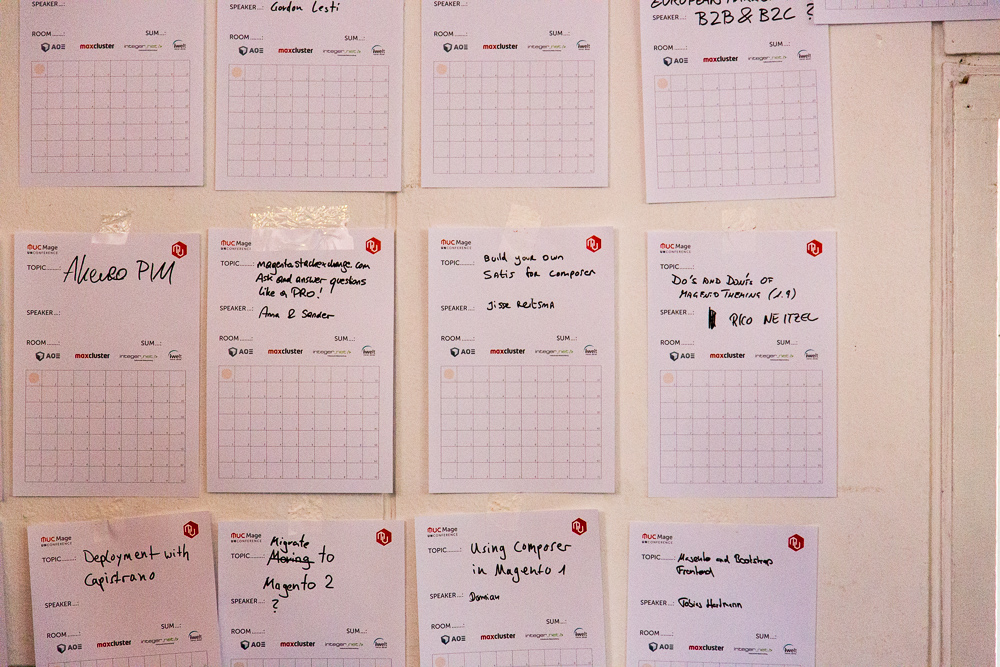 SPEAKER......:
Gordon Lesti
ROOM........:
SUM.....:
AOE
maxcluster
integer_net
iwelt
ROOM........:
SUM.....:
AOE
maxcluster
integer_net
iwelt
SPEAKER......:
ROOM........:
SUM.....:
AOE
maxcluster
integer_net
iwelt
EUROPEAN
SPEAKER......: B2B & B2C ?
ROOM........:
SUM.....:
AOE
maxcluster
integer_net
iwelt
MUC Mage
UNCONFERENCE
TOPIC..........: Akeneo PIM
SPEAKER......:
ROOM........:
SUM.....:
AOE
maxcluster
integer_net
iwelt
MUC Mage
UNCONFERENCE
TOPIC..........: magento.stackexchange.com
Ask and answer questions
like a PRO!
SPEAKER......: Anna & Sander
ROOM........:
SUM.....:
AOE
maxcluster
integer_net
iwelt
MUC Mage
UNCONFERENCE
TOPIC..........: Build your own
Satis for composer
SPEAKER......: Jisse Reitsma
ROOM........:
SUM.....:
AOE
maxcluster
integer_net
iwelt
MUC Mage
UNCONFERENCE
TOPIC..........:
Do's AND DONT'S OF
MAGENTO THEMING (1.9)
SPEAKER......: RICO NEITZEL
ROOM........:
SUM.....:
AOE
maxcluster
integer_net
iwelt
MUC Mage
UNCONFERENCE
TOPIC..........: Deployment with
Capistrano
SPEAKER......:
ROOM........:
SUM.....:
AOE
maxcluster
integer_net
iwelt
MUC Mage
UNCONFERENCE
TOPIC..........: Migrate
to
Magento 2
SPEAKER......: ?
ROOM........:
SUM.....:
AOE
maxcluster
integer_net
iwelt
MUC Mage
UNCONFERENCE
TOPIC..........: Using Composer
in Magento 1
SPEAKER......: Damian
ROOM........:
SUM.....:
AOE
maxcluster
integer_net
iwelt
MUC Mage
UNCONFERENCE
TOPIC..........: Magento and Bootstrap
Frontend
SPEAKER......: Tobias Hartmann
ROOM........:
SUM.....:
AOE
maxcluster
integer_net
iwelt